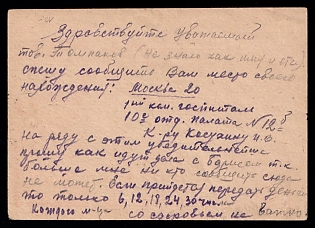 Здравствуйте уважаемый
тов. Толмаков (не знаю как имя и отч.)
спешу сообщить Вам место своего
нахождения: Москва 20
1ый ком. госпиталь
10е отд. палата № 12
К-ру Косухину
на ряду с этим убедительно
прошу как идут дела с т.к.
больше мне ни кто сообщить сюда
не может. Если придется передать деньги
то только 6, 12, 18, 24, 30 числа
Каждого м-ца со здоровьем не важно